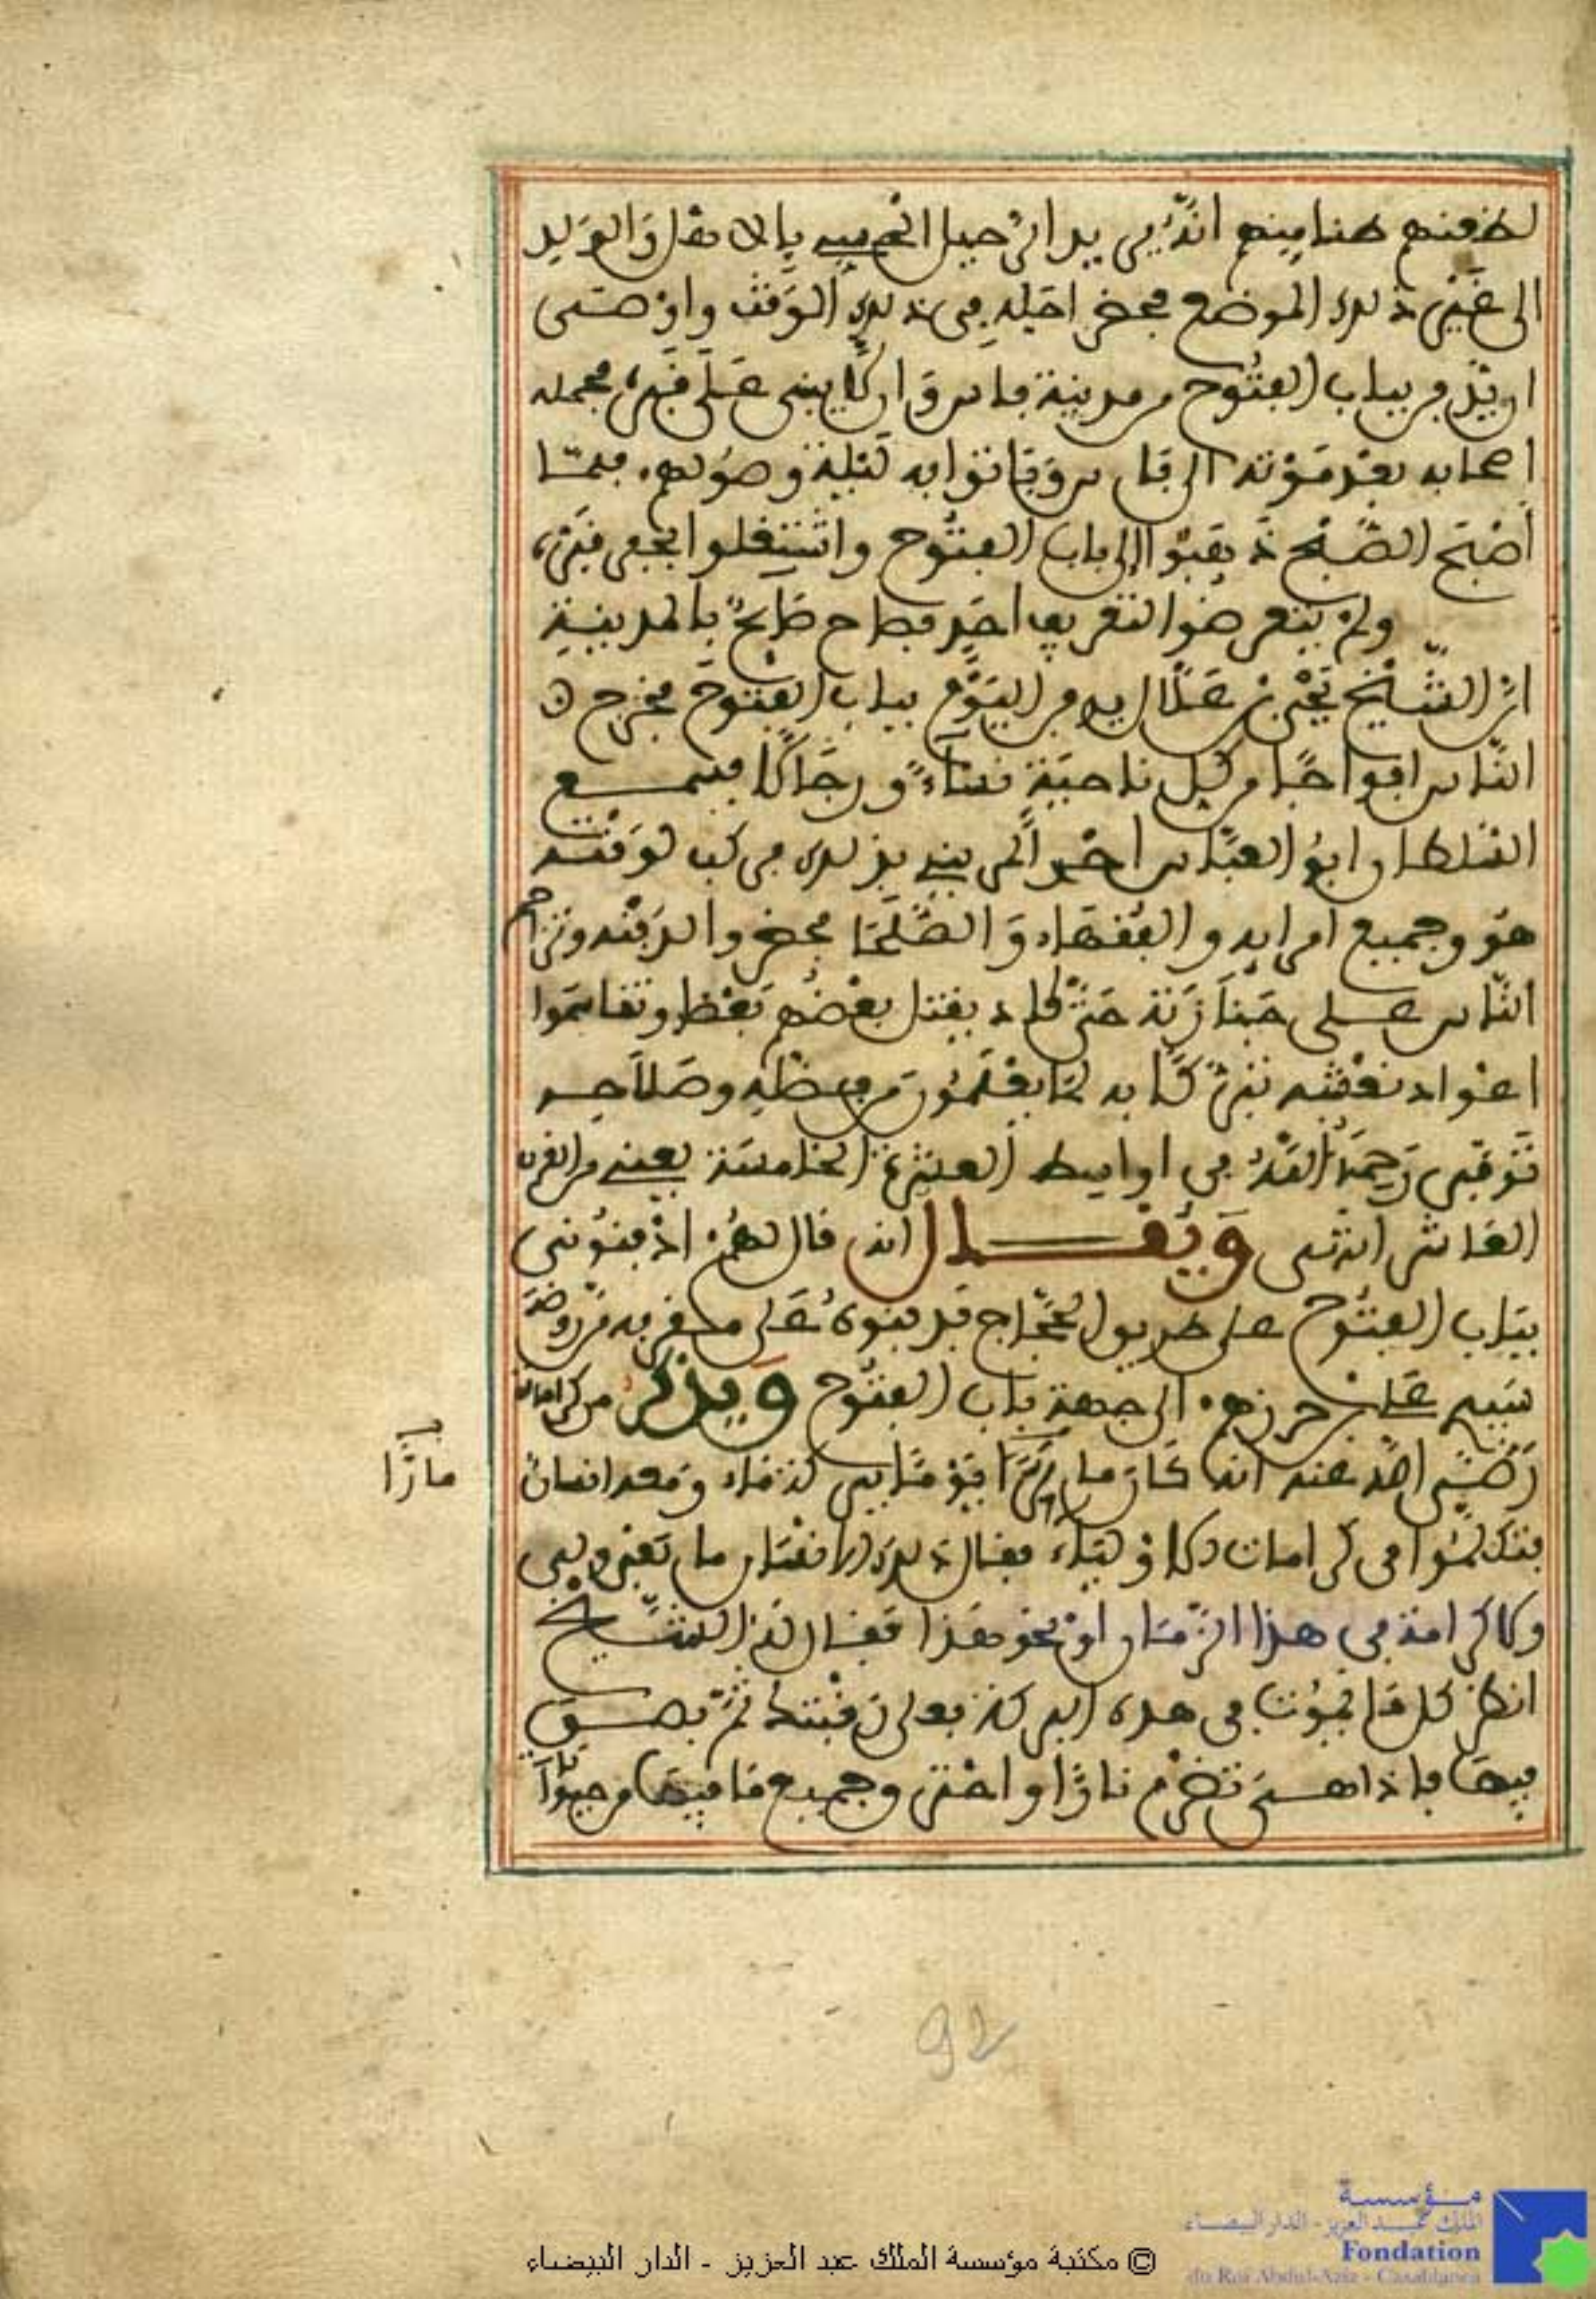 لظفنهم هنا منهم انه يريد الى جبل الحبيب بالا مفل والولد
الى غير ذلك الموضع فحضر اجله في ذلك الوقت واوصى
ان يدفن بباب الفتوح من مدينة فاس وان لا يبنى على قبره فحمله
اصحابه بعد موته الى فاس وباتوا به ليلة وصولهم فلما
اصبح الصبح ذهبوا الى باب الفتوح واشتغلوا بحفر قبره
ولم يتعرضوا لتعريف احد فصاح صايح بالمدينة
ان الشيخ يحيى بن علال يدفن اليوم بباب الفتوح فخرج
الناس افواجا من كل ناحية نساء ورجالا فسمع
السلطان ابو العباس احمد المريني بذلك فركب لوقته
هو وجميع امرايه والفقهاء والصلحا فحضروا لدفنه وتزاحم
الناس على جنازته حتى كاد يفتل بعضهم بعظا وتفاسموا
اعواد نعشه تبركا به لما يعلمون من فضله وصلاحه
توفي رحمه الله في اواسط العشرة الخامسة يعني من الفرن
العاشر انتهى ويفال انه قال لهم ادفنوني
بباب الفتوح على طريق الحجاج فدفنوه على مفربه من روضة
سيدي علي بن حرزهم الى جهة باب الفتوح ويذكر من كراماته
رضي الله عنه انه كان مارا يوما بين لدنماد ومعه انسان
فتكلموا في كرامات الاولياء ففال ذلك الانسان ما بقي ولي
ولا كرامة في هذا الزمان او نحو هذا ففال له الشيخ
انظر كل ما يموت في هذه البركة فعلى رفبتك ثم بصق
فيها فاذا هي تضرم نارا واحترق وجميع ما فيها من حيوان
مارا
92
© مكتبة مؤسسة الملك عبد العزيز - الدار البيضاء
مؤسسة
الملك عبد العزيز - الدار البيضاء
Fondation
du Roi Abdul-Aziz - Casablanca